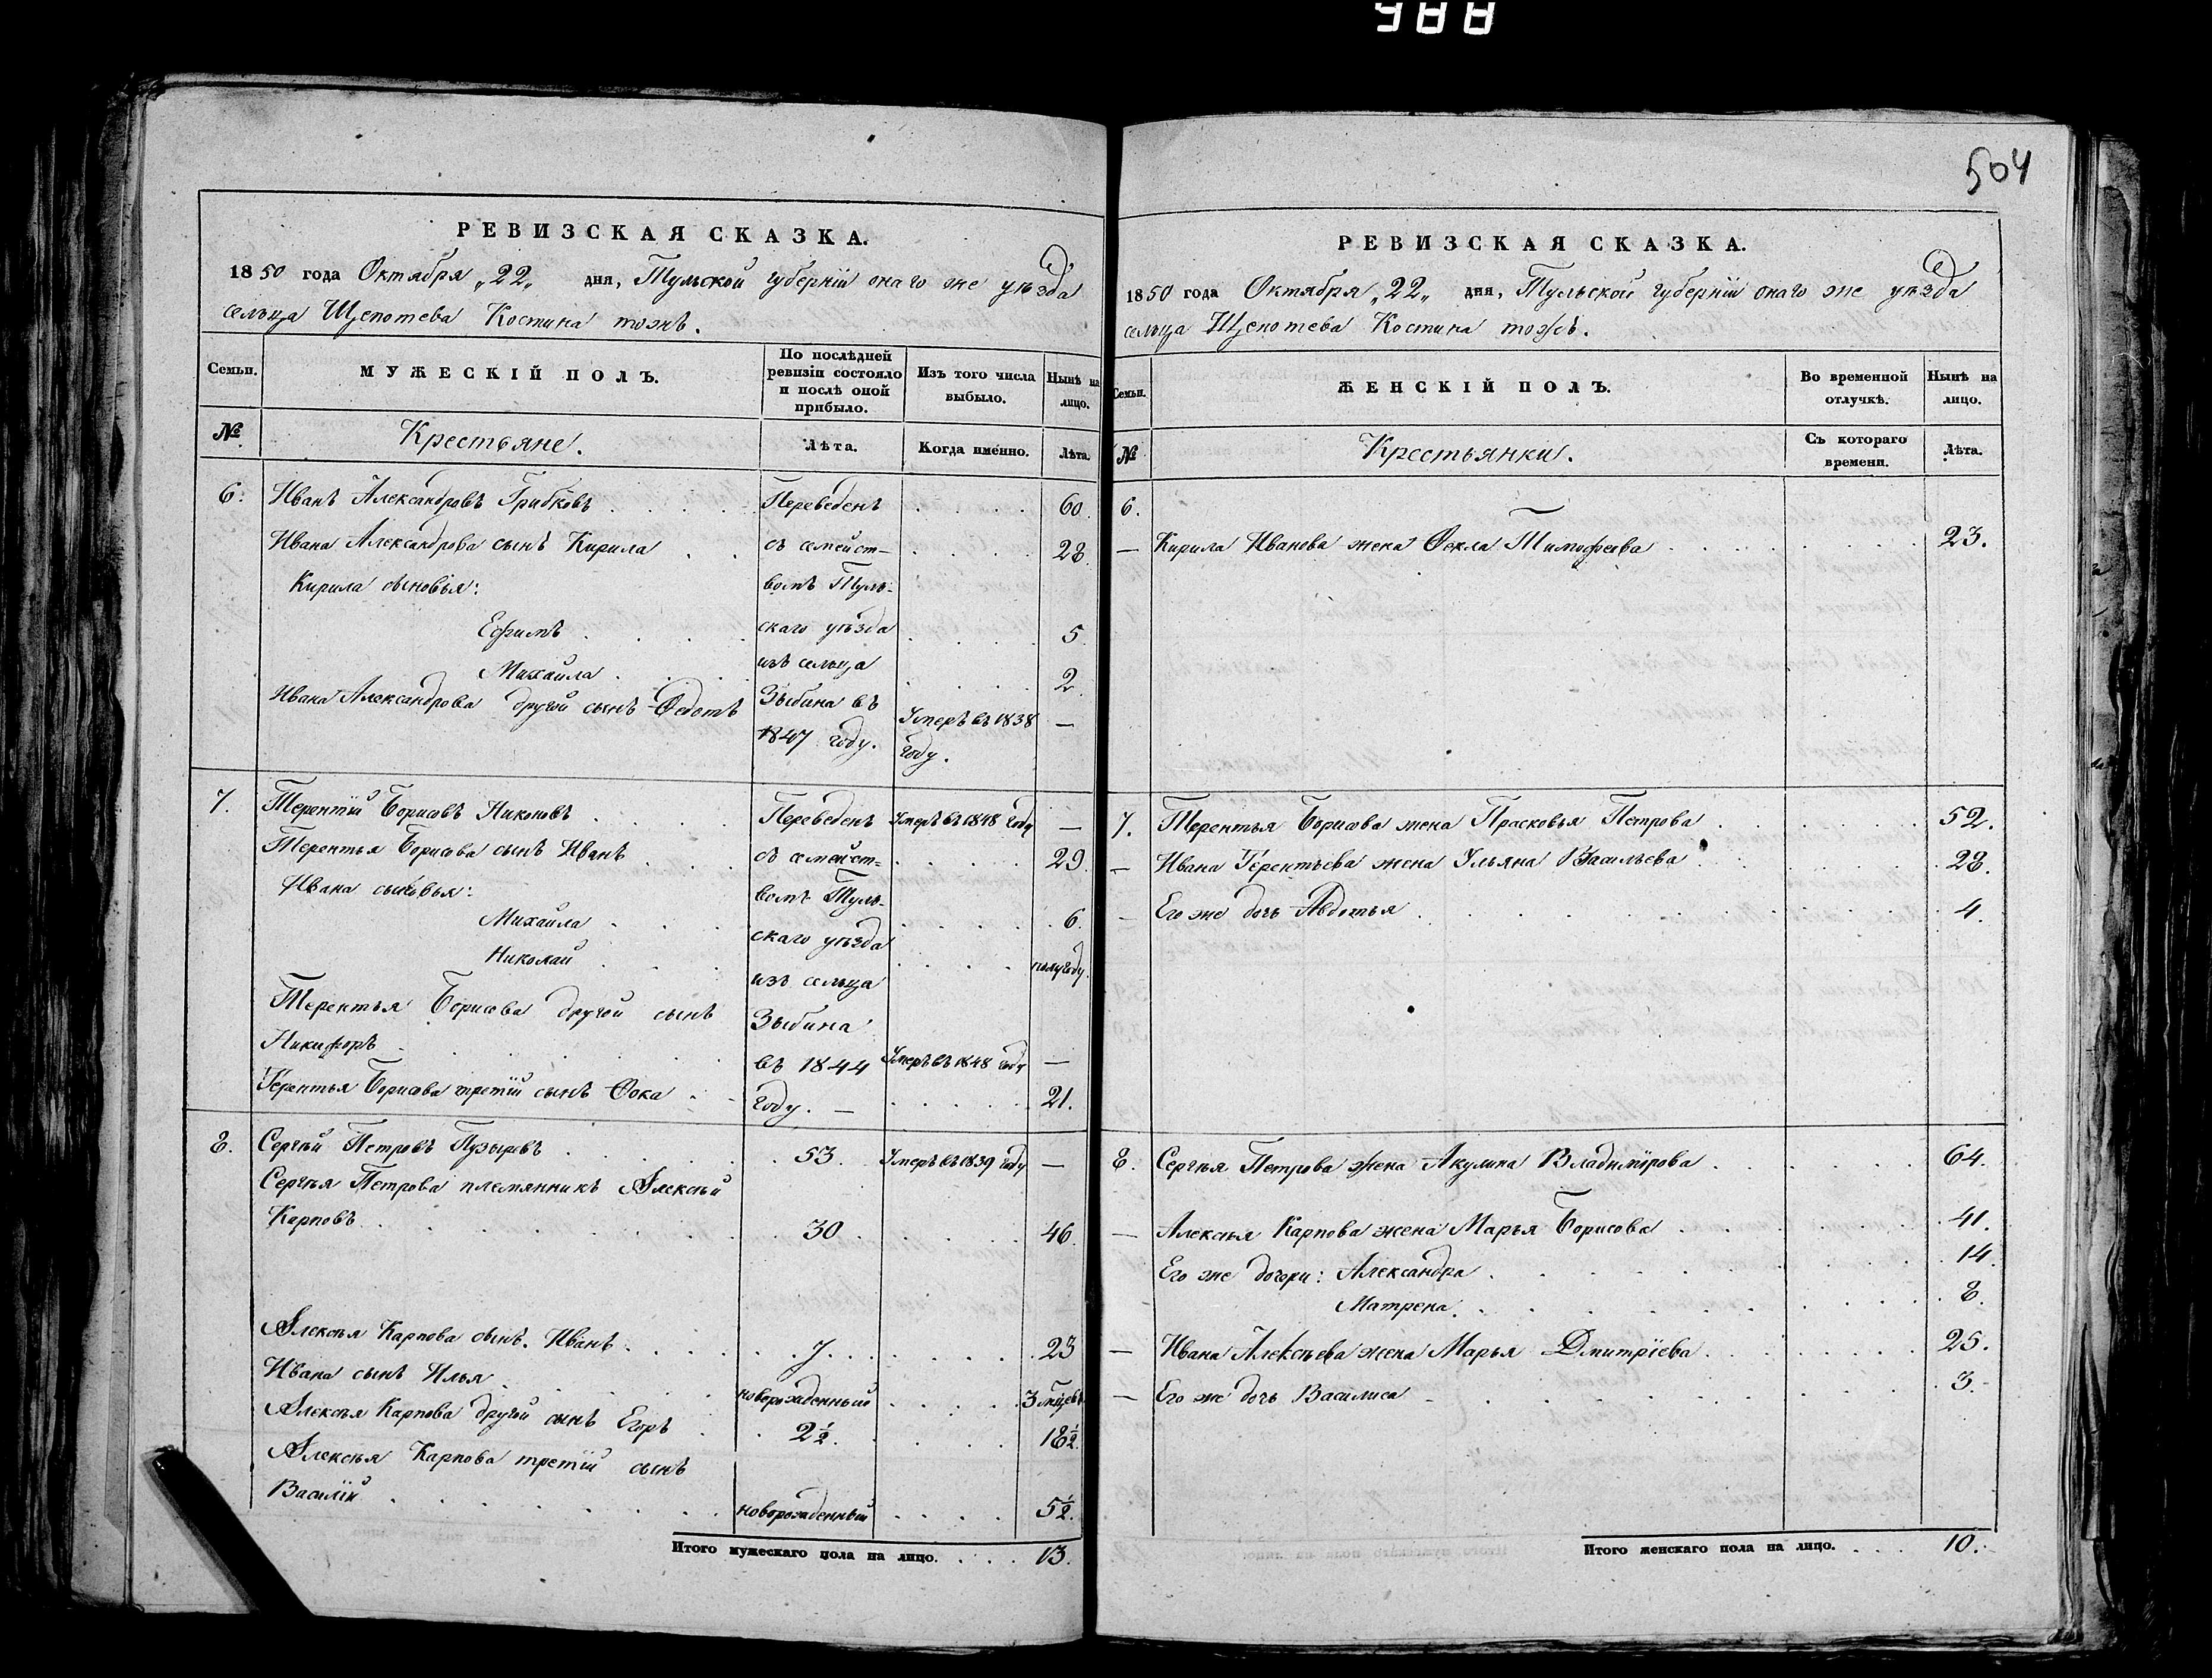 988
504
РЕВИЗСКАЯ СКАЗКА.
1850 года Октября „22„ дня, Тульской губерніи онаго же уѣзда
сельца Щепотева Костина тожъ.
Семьи.
МУЖЕСКІЙ ПОЛЪ.
По послѣдней
ревизіи состояло
и послѣ оной
прибыло.
Изъ того числа
выбыло.
Нынѣ на
лицо.
№
Крестьяне.
Лѣта.
Когда именно.
Лѣта.
6. Иванъ Александровъ Грибковъ . . . . Переведенъ . . . . 60.
Ивана Александрова сынъ Кирила . . съ семейст- . . . . 28.
Кирила сыновья: вомъ Туль-
Ефимъ . . . . скаго уѣзда . . . . 5.
изъ сельца
Михайла . . . . . . . . 2.
Ивана Александрова другой сынъ Федотъ Зыбина въ Умеръ въ 1838 —
1847 году. году.
7. Терентій Борисовъ Никоновъ . . . . Переведенъ Умеръ въ 1848 году —
Терентья Борисова сынъ Иванъ . . . съ семейст- . . . . 29.
Ивана сыновья: вомъ Туль-
Михайла . . . . . . . . 6.
скаго уѣзда
Николай . . . . . . . . полугоду.
изъ сельца
Терентья Борисова другой сынъ Зыбина
Никифоръ . . . . . . въ 1844 Умеръ въ 1848 году —
Терентья Борисова третій сынъ Фока . . году. — . . . . . 21.
8. Сергѣй Петровъ Пузыревъ . . . . . 53. Умеръ въ 1839 году —
Сергѣя Петрова племянникъ Алексѣй
Карповъ . . . . . . . 30. . . . . . 46.
Алексѣя Карпова сынъ Иванъ . . . . . 7. . . . . . . 23
Ивана сынъ Илья . . . . новорожденный . . . . 3 мѣсяцевъ
Алексѣя Карпова другой сынъ Егоръ . . 2½. . . . . 18½.
Алексѣя Карпова третій сынъ
Василій . . . . . . . новорожденный . . . . 5½.
Итого мужескаго пола на лицо. . . . . 13.
РЕВИЗСКАЯ СКАЗКА.
1850 года Октября „22„ дня, Тульской губерніи онаго же уѣзда
сельца Щепотева Костина тожъ.
Семьи.
ЖЕНСКІЙ ПОЛЪ.
Во временной
отлучкѣ.
Нынѣ на
лицо.
№
Крестьянки.
Съ котораго
времени.
Лѣта.
6.
— Кирила Иванова жена Фекла Тимофеева . . . . . . . 23.
7. Терентья Борисова жена Прасковья Петрова . . . . . . 52.
— Ивана Терентьева жена Ульяна Васильева . . . . . . 28.
— Его же дочь Авдотья . . . . . . . . . 4.
8. Сергѣя Петрова жена Акулина Владимірова . . . . . . 64.
— Алексѣя Карпова жена Марья Борисова . . . . . . . 41.
Его же дочери: Александра . . . . . . . . 14.
Матрена . . . . . . . . . 8.
— Ивана Алексѣева жена Марья Дмитріева . . . . . . . 25.
— Его же дочь Василиса . . . . . . . . . 3.
Итого женскаго пола на лицо. . . . 10.